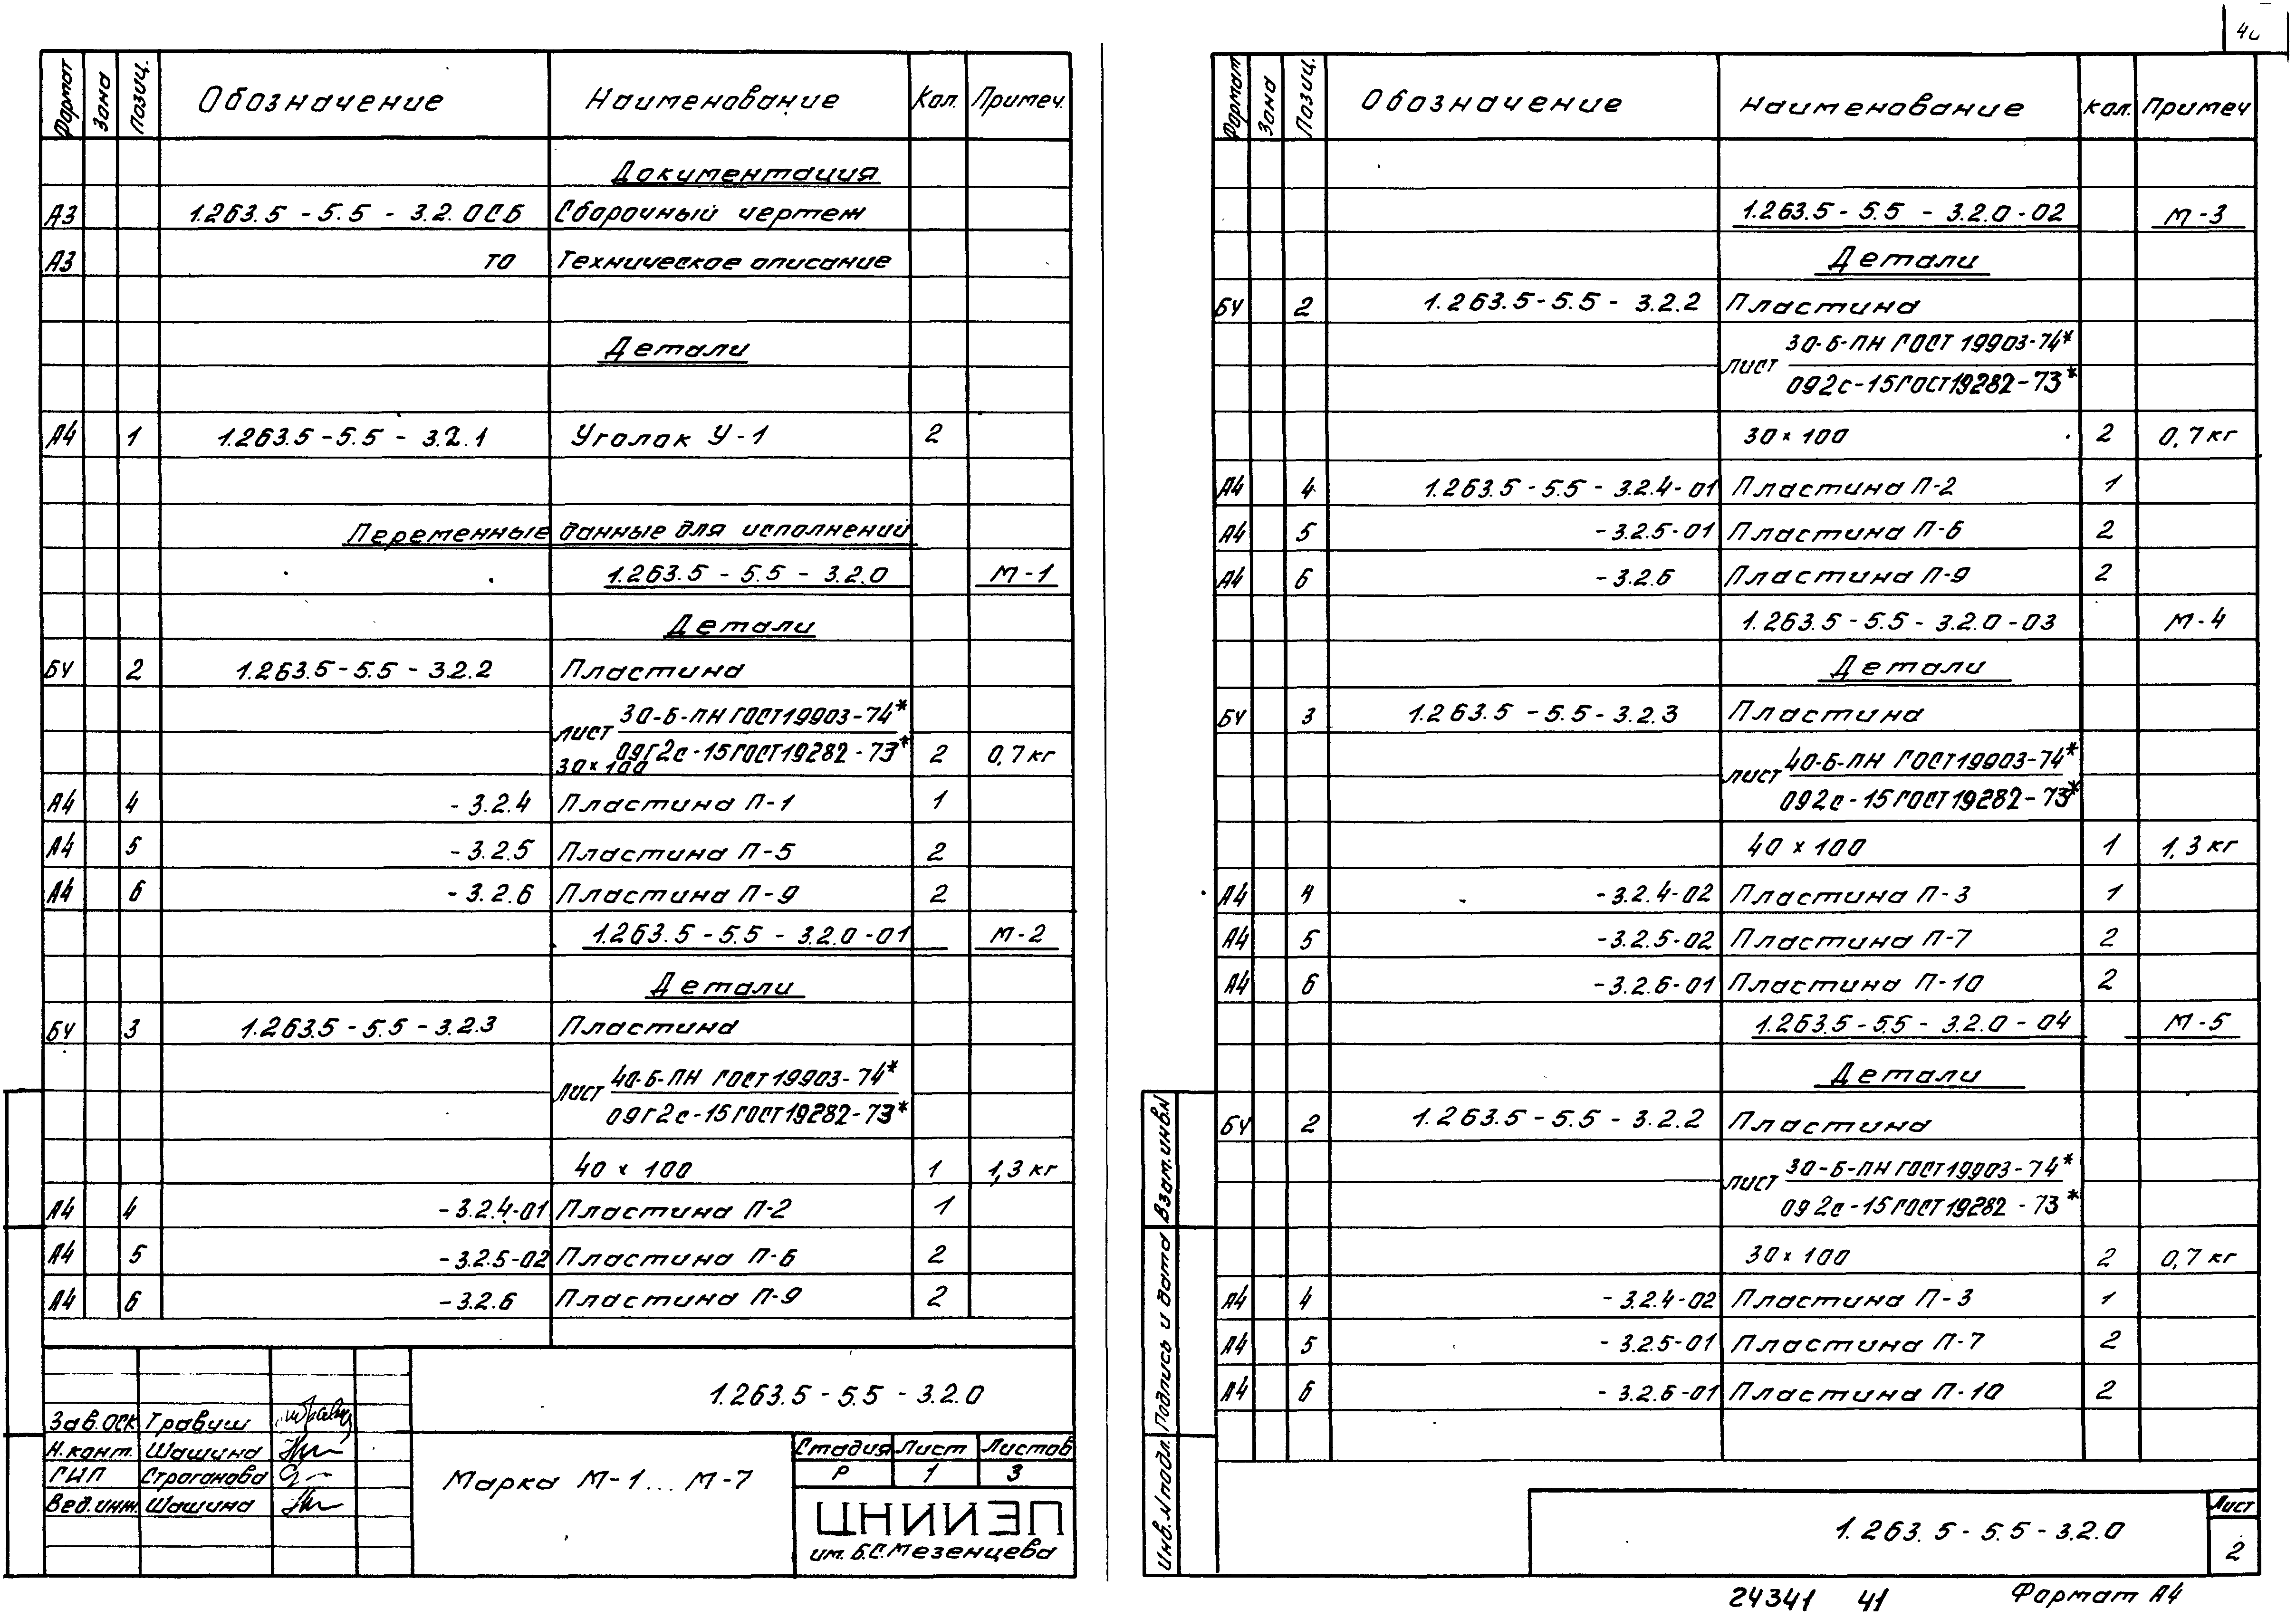 Формат Зона Позиц. Обозначение Наименование Кол. Примеч.
Документация
А3 1.263.5 - 5.5 - 3.2.0СБ Сборочный чертеж
А3 ТО Техническое описание
Детали
А4 1 1.263.5 - 5.5 - 3.2.1 Уголок У-1 2
Переменные данные для исполнений
1.263.5 - 5.5 - 3.2.0 М-1
Детали
БЧ 2 1.263.5 - 5.5 - 3.2.2 Пластина
30-Б-ПН ГОСТ 19903-74*
лист
09г2с-15 ГОСТ 19282-73* 2 0,7 кг
30×100
А4 4 - 3.2.4 Пластина П-1 1
А4 5 - 3.2.5 Пластина П-5 2
А4 6 - 3.2.6 Пластина П-9 2
1.263.5 - 5.5 - 3.2.0-01 М-2
Детали
БЧ 3 1.263.5 - 5.5 - 3.2.3 Пластина
40-Б-ПН ГОСТ 19903-74*
лист
09г2с-15 ГОСТ 19282-73*
40 × 100 1 1,3 кг
А4 4 - 3.2.4-01 Пластина П-2 1
А4 5 - 3.2.5-02 Пластина П-6 2
А4 6 - 3.2.6 Пластина П-9 2
1.263.5 - 5.5 - 3.2.0
Зав.ОСК Травуш
Н.конт. Шашина
ГИП Строганова
Вед.инж. Шашина
Марка М-1... М-7
Стадия Лист Листов
Р 1 3
ЦНИИЭП
им. Б.С.Мезенцева
Формат Зона Позиц. Обозначение Наименование Кол. Примеч
1.263.5 - 5.5 - 3.2.0-02 М-3
Детали
БЧ 2 1.263.5 - 5.5 - 3.2.2 Пластина
30-Б-ПН ГОСТ 19903-74*
лист
092с-15 ГОСТ 19282-73*
30×100 2 0,7 кг
А4 4 1.263.5 - 5.5 - 3.2.4-01 Пластина П-2 1
А4 5 - 3.2.5-01 Пластина П-6 2
А4 6 - 3.2.6 Пластина П-9 2
1.263.5 - 5.5 - 3.2.0-03 М-4
Детали
БЧ 3 1.263.5 - 5.5 - 3.2.3 Пластина
40-Б-ПН ГОСТ 19903-74*
лист
092с-15 ГОСТ 19282-73*
40 × 100 1 1,3 кг
А4 4 - 3.2.4-02 Пластина П-3 1
А4 5 - 3.2.5-02 Пластина П-7 2
А4 6 - 3.2.6-01 Пластина П-10 2
1.263.5 - 5.5 - 3.2.0-04 М-5
Детали
БЧ 2 1.263.5 - 5.5 - 3.2.2 Пластина
30-Б-ПН ГОСТ 19903-74*
лист
092с-15 ГОСТ 19282-73*
30×100 2 0,7 кг
А4 4 - 3.2.4-02 Пластина П-3 1
А4 5 - 3.2.5-01 Пластина П-7 2
А4 6 - 3.2.6-01 Пластина П-10 2
Взам.инв.N
Подпись и дата
Инв.N подл.
1.263.5 - 5.5 - 3.2.0
Лист
2
24341 41 Формат А4